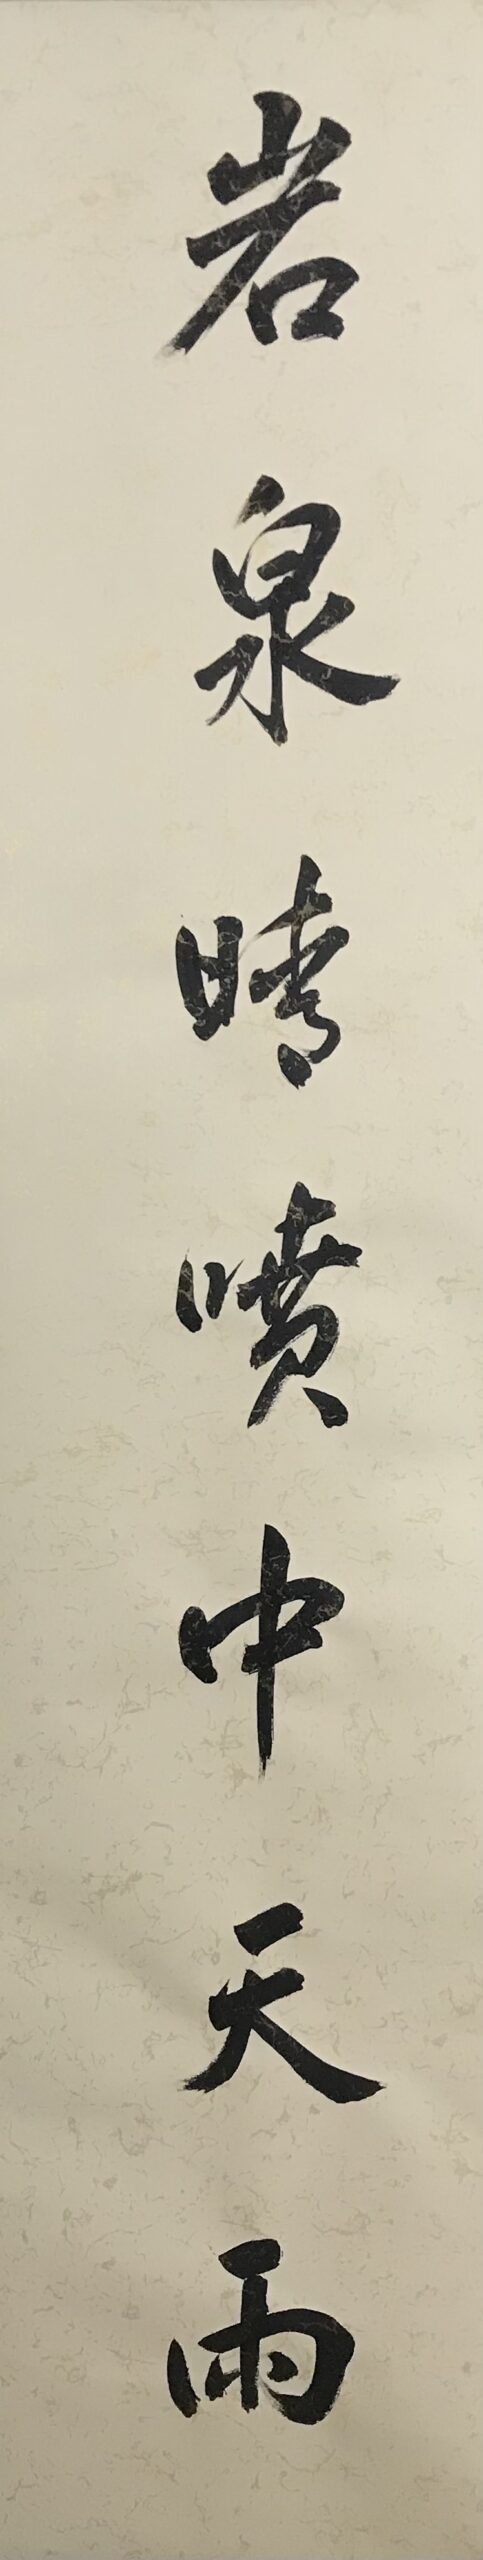 岩泉晴噴中天雨